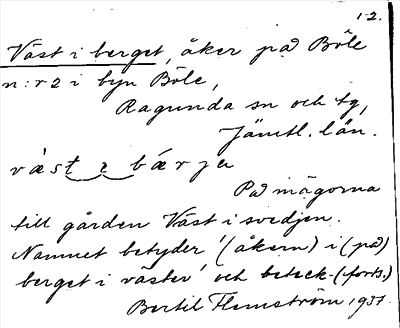 1-2.
Väst i berget, åker på Böle
n:r 2 i byn Böle,
Ragunda sn och tg,
Jämtl. län.
väst i bǽrje
På inägorna
till gården Väst i svedjen.
Namnet betyder '(åkern) i (på)
berget i väster' och beteck- (forts.)
Bertil Flemström 1937.